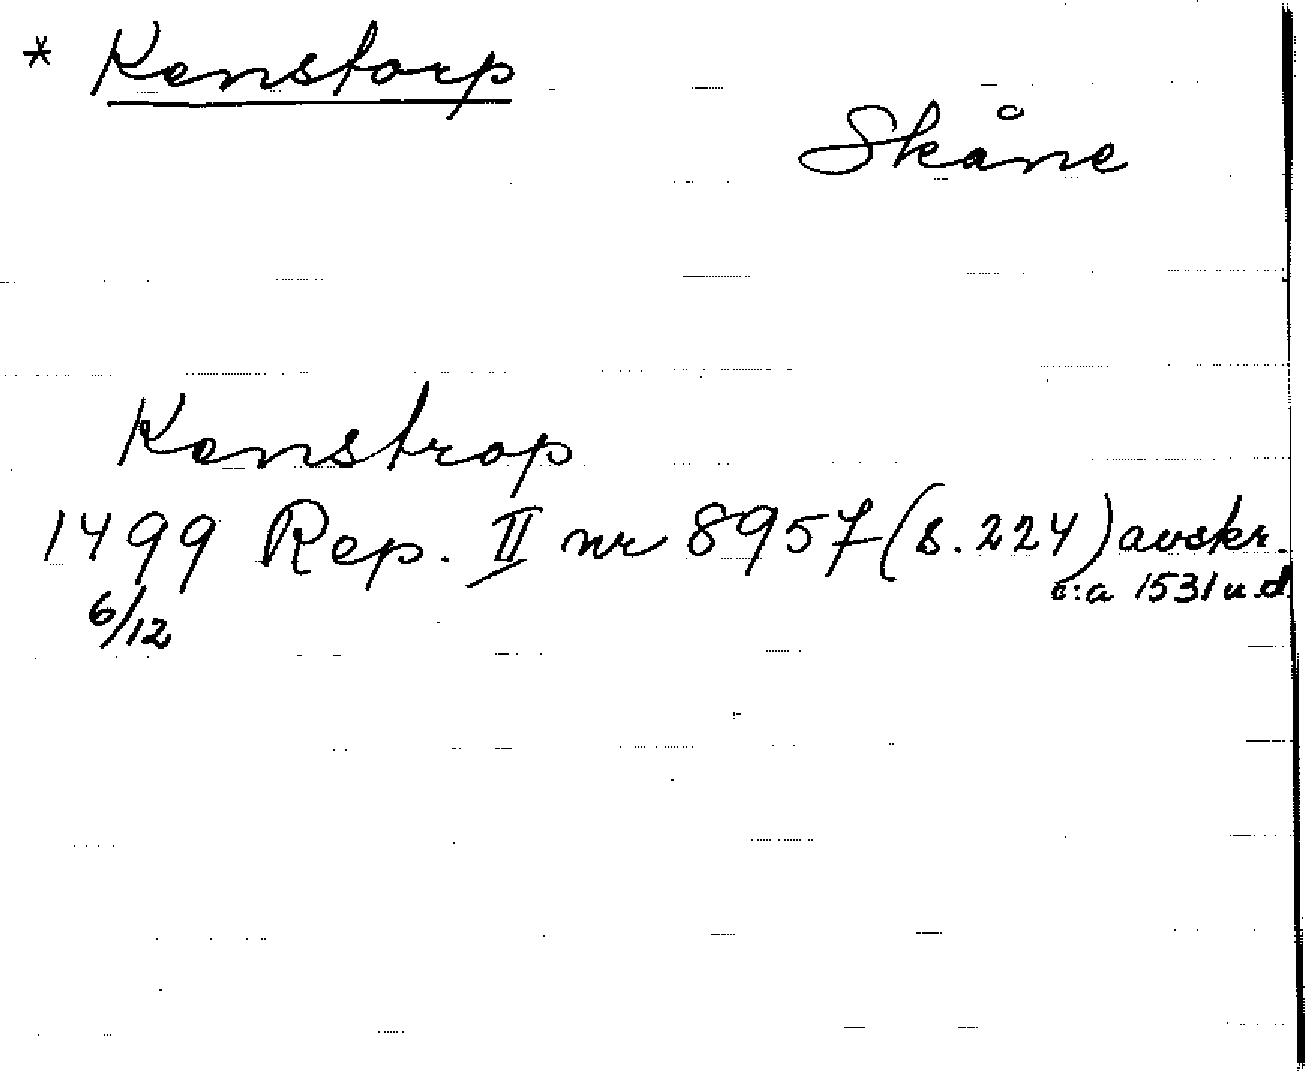 * Kenstorp
Skåne
Kenstrop
1499 Rep. II nr 8957 (s. 224) avskr.
6/12
c:a 1531 u.d.